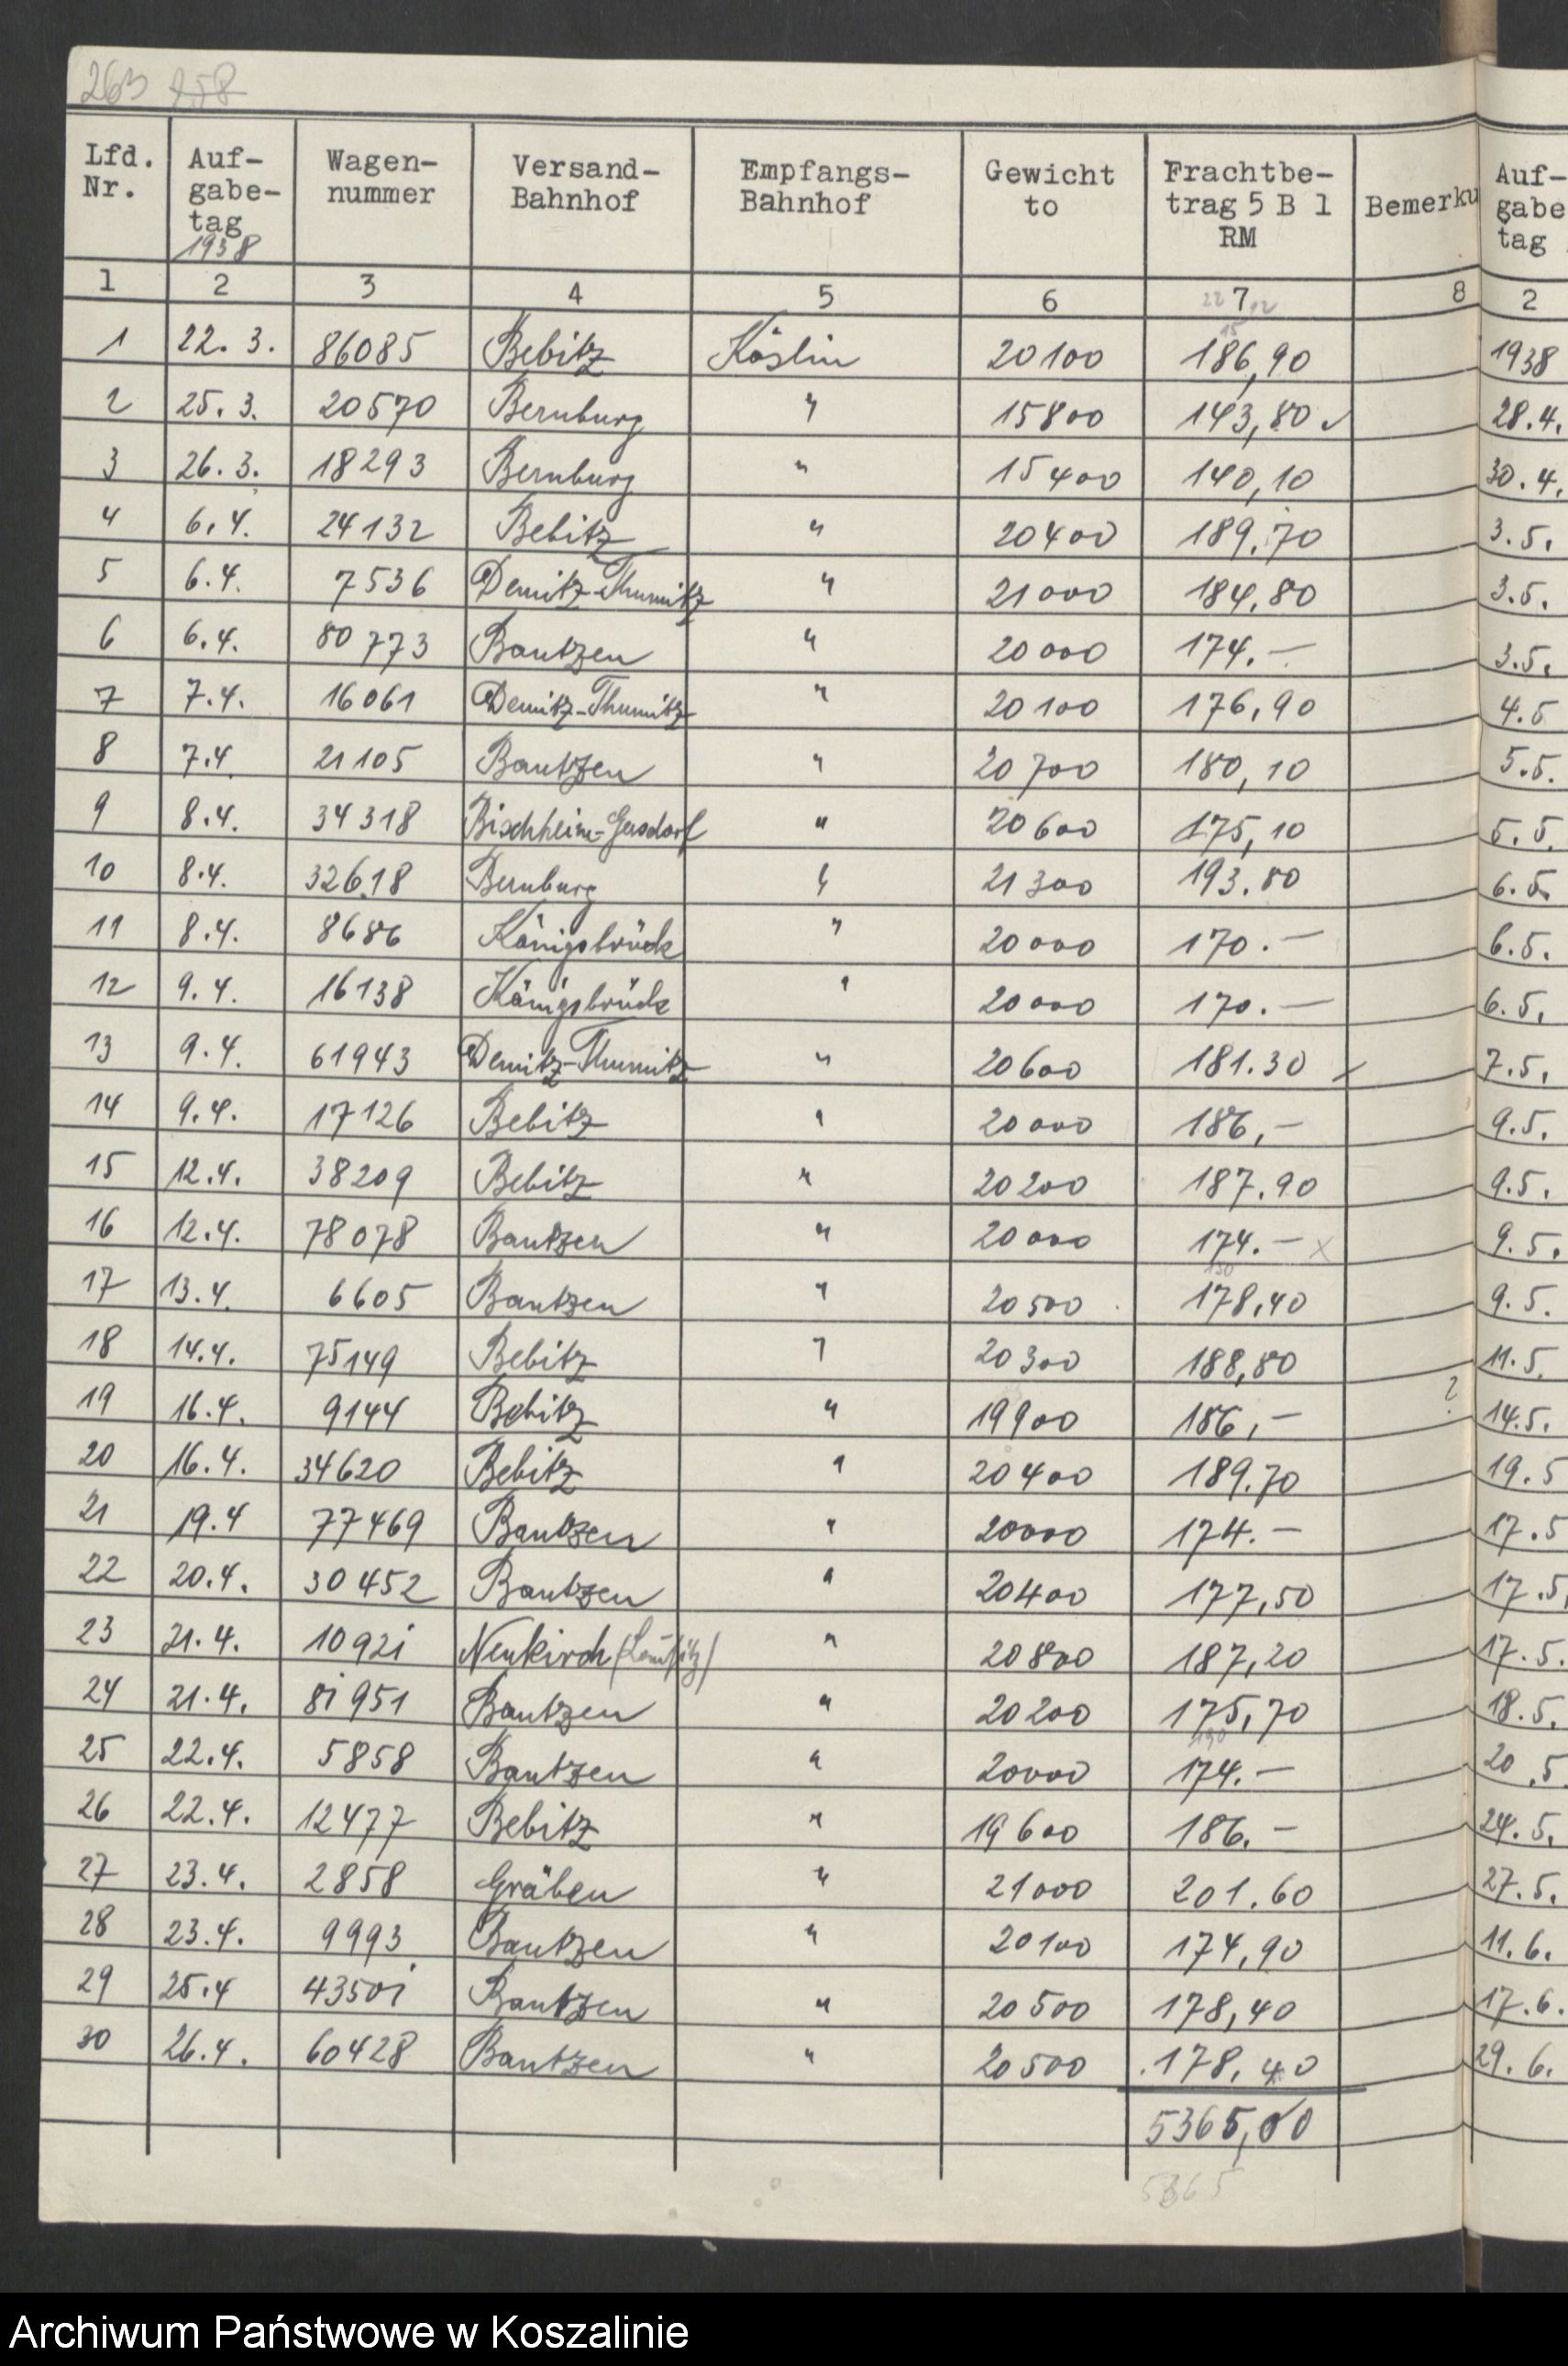 263 258
Lfd. Nr. | Auf-gabe-tag 1938 | Wagen-nummer | Versand-Bahnhof | Empfangs-Bahnhof | Gewicht to | Frachtbe-trag 5 B 1 RM | Bemerku | Auf-gabe tag
1 | 2 | 3 | 4 | 5 | 6 | 7 | 8 | 2
1 | 22. 3. | 86085 | Bebitz | Köslin | 20100 | 186,90 | | 1938
2 | 25. 3. | 20570 | Bernburg | " | 15800 | 143,80 ✓ | | 28.4.
3 | 26. 3. | 18293 | Bernburg | " | 15400 | 140,10 | | 30.4.
4 | 6. 4. | 24132 | Bebitz | " | 20400 | 189,70 | | 3.5.
5 | 6.4. | 7536 | Demitz-Thumitz | " | 21000 | 184,80 | | 3.5.
6 | 6.4. | 80773 | Bautzen | " | 20000 | 174.— | | 3.5.
7 | 7.4. | 16061 | Demitz-Thumitz | " | 20100 | 176,90 | | 4.5
8 | 7.4. | 21105 | Bautzen | " | 20700 | 180,10 | | 5.5.
9 | 8.4. | 34318 | Bischheim-Gersdorf | " | 20600 | 175,10 | | 5.5.
10 | 8.4. | 32618 | Bernburg | " | 21300 | 193.80 | | 6.5.
11 | 8.4. | 8686 | Königsbrück | " | 20000 | 170.— | | 6.5.
12 | 9.4. | 16138 | Königsbrück | " | 20000 | 170.— | | 6.5.
13 | 9.4. | 61943 | Demitz-Thumitz | " | 20600 | 181.30 ✓ | | 7.5.
14 | 9.4. | 17126 | Bebitz | " | 20000 | 186,— | | 9.5.
15 | 12.4. | 38209 | Bebitz | " | 20200 | 187.90 | | 9.5.
16 | 12.4. | 78078 | Bautzen | " | 20000 | 174.— x | | 9.5.
17 | 13.4. | 6605 | Bautzen | " | 20500 | 178,40 | | 9.5.
18 | 14.4. | 75149 | Bebitz | " | 20300 | 188,80 | | 11.5.
19 | 16.4. | 9144 | Bebitz | " | 19900 | 186,— | ? | 14.5.
20 | 16.4. | 34620 | Bebitz | " | 20400 | 189.70 | | 19.5
21 | 19.4 | 77469 | Bautzen | " | 20000 | 174.— | | 17.5
22 | 20.4. | 30452 | Bautzen | " | 20400 | 177,50 | | 17.5.
23 | 21.4. | 10921 | Neukirch (Lausitz) | " | 20800 | 187,20 | | 17.5.
24 | 21.4. | 81951 | Bautzen | " | 20200 | 175,70 | | 18.5.
25 | 22.4. | 5858 | Bautzen | " | 20000 | 174.— | | 20.5
26 | 22.4. | 12477 | Bebitz | " | 19600 | 186.— | | 24.5.
27 | 23.4. | 2858 | Gräben | " | 21000 | 201.60 | | 27.5.
28 | 23.4. | 9993 | Bautzen | " | 20100 | 174,90 | | 11.6.
29 | 25.4 | 43501 | Bautzen | " | 20500 | 178,40 | | 17.6.
30 | 26.4. | 60428 | Bautzen | " | 20500 | 178,40 | | 29.6.
5365,00
5365
Archiwum Państwowe w Koszalinie